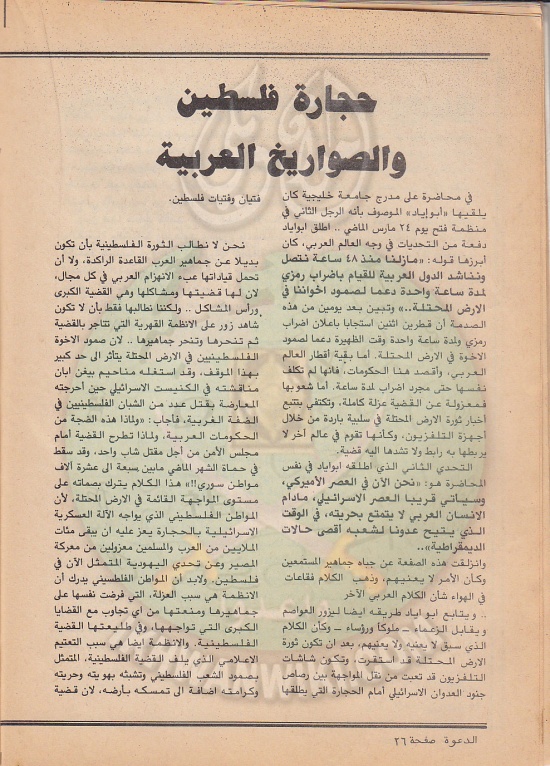 حجارة فلسطين
والصواريخ العربية
في محاضرة على مدرج جامعة خليجية كان
يلقيها «أبوإياد» الموصوف بأنه الرجل الثاني في
منظمة فتح يوم ٢٤ مارس الماضي .. اطلق ابواياد
دفعة من التحديات في وجه العالم العربي، كان
أبرزها قوله: «مازلنا منذ ٤٨ ساعة نتصل
ونناشد الدول العربية للقيام باضراب رمزي
لمدة ساعة واحدة دعما لصمود اخواننا في
الارض المحتلة..» وتبين بعد يومين من هذه
الصدمة أن قطرين اثنين استجابا باعلان اضراب
رمزي ولمدة ساعة واحدة وقت الظهيرة دعما لصمود
الاخوة في الارض المحتلة. أما بقية أقطار العالم
العربي، وأقصد هنا الحكومات، فانها لم تكلف
نفسها حتى مجرد اضراب لمدة ساعة، أما شعوبها
فمعزولة عن القضية عزلة كاملة، وتكتفي بتتبع
أخبار ثورة الارض المحتلة في سلبية باردة من خلال
أجهزة التلفزيون، وكأنها تقوم في عالم آخر لا
يربطها به رابط ولا تشدها اليه قضية.
التحدي الثاني الذي اطلقه ابواياد في نفس
المحاضرة هو: «نحن الآن في العصر الأميركي،
وسيأتي قريبا العصر الاسرائيلي، مادام
الانسان العربي لا يتمتع بحريته، في الوقت
الذي يتيح عدونا لشعبه أقصى حالات
الديمقراطية»..
وانزلقت هذه الصفعة عن جباه جماهير المستمعين
وكأن الأمر لا يعنيهم، وذهب الكلام فقاعات
في الهواء شأن الكلام العربي الآخر
.. ويتابع ابو اياد طريقه ايضا ليزور العواصم
ويقابل الزعماء - ملوكا ورؤساء - وكأن الكلام
الذي سبق لا يعنيه ولا يعنيهم، بعد ان تكون ثورة
الارض المحتلة قد استقرت، وتكون شاشات
التلفزيون قد تعبت من نقل المواجهة بين رصاص
جنود العدوان الاسرائيلي أمام الحجارة التي يطلقها
فتيان وفتيات فلسطين.
نحن لا نطالب الثورة الفلسطينية بأن تكون
بديلا عن جماهير العرب القاعدة الراكدة، ولا أن
تحمل قياداتها عبء الانهزام العربي في كل مجال،
لان لها قضيتها ومشاكلها وهي القضية الكبرى
ورأس المشاكل .. ولكننا نطالبها فقط بأن لا تكون
شاهد زور على الانظمة القهرية التي تتاجر بالقضية
ثم تنحرها وتنحر جماهيرها .. لان صمود الاخوة
الفلسطينيين في الارض المحتلة يتأثر الى حد كبير
بهذا الموقف. وقد استغله مناحيم بيغن ابان
مناقشته في الكنيست الاسرائيلي حين احرجته
المعارضة بقتل عدد من الشبان الفلسطينيين في
الضفة الغربية، فأجاب: «ولماذا هذه الضجة من
الحكومات العربية، ولماذا تطرح القضية أمام
مجلس الأمن من أجل مقتل شاب واحد، وقد سقط
في حماة الشهر الماضي مابين سبعة الى عشرة آلاف
مواطن سوري!!» هذا الكلام يترك بصماته على
مستوى المواجهة القائمة في الارض المحتلة، لأن
المواطن الفلسطيني الذي يواجه الآلة العسكرية
الاسرائيلية بالحجارة يعز عليه ان يبقى مئات
الملايين من العرب والمسلمين معزولين عن معركة
المصير وعن تحدي اليهودية المتمثل الآن في
فلسطين. ولابد أن المواطن الفلطسيني يدرك أن
الانظمة هي سبب العزلة، التي فرضت نفسها على
جماهيرها ومنعتها من اي تجاوب مع القضايا
الكبرى التي تواجهها، وفي طليعتها القضية
الفلسطينية. والانظمة ايضا هي سبب التعتيم
الاعلامي الذي يلف القضية الفلسطينية، المتمثل
بصمود الشعب الفلسطيني وتشبثه بهويته وحريته
وكرامته اضافة الى تمسكه بأرضه، لان قضية
الدعوة صفحة ٢٦